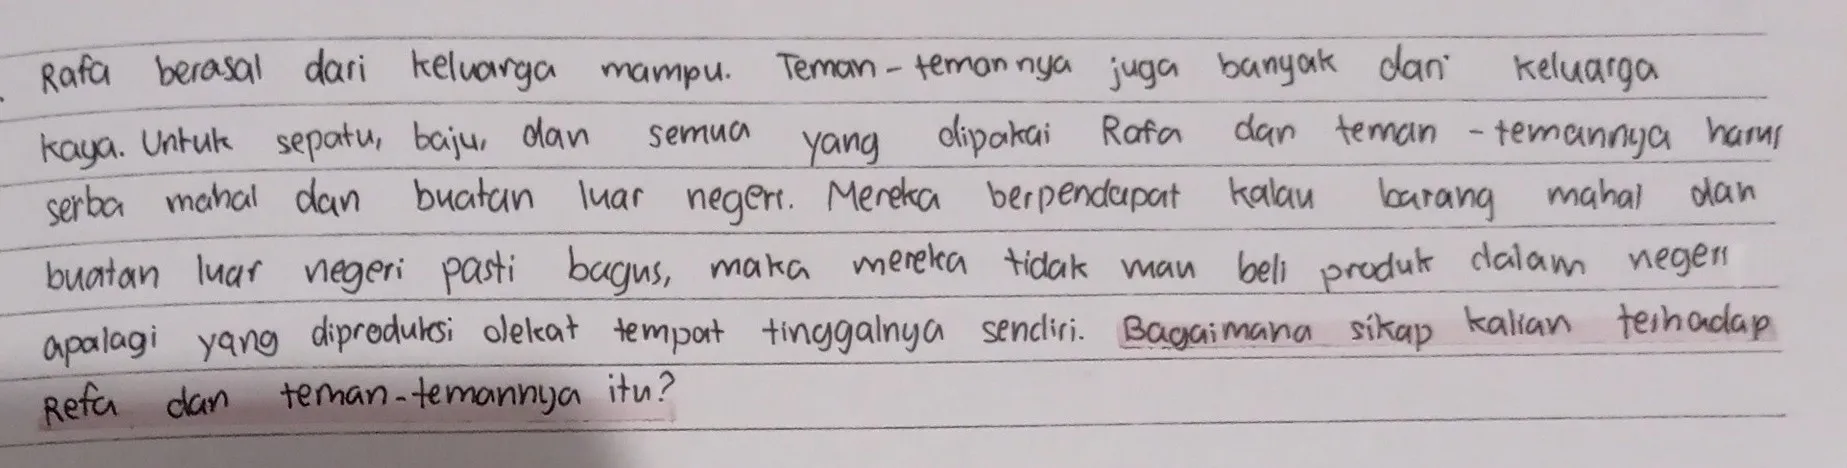 Rafa berasal dari keluarga mampu. Teman-temannya juga banyak dari keluarga
kaya. Untuk sepatu, baju, dan semua yang dipakai Rafa dan teman-temannya harus
serba mahal dan buatan luar negeri. Mereka berpendapat kalau barang mahal dan
buatan luar negeri pasti bagus, maka mereka tidak mau beli produk dalam negeri
apalagi yang diproduksi dekat tempat tinggalnya sendiri. Bagaimana sikap kalian terhadap
Refa dan teman-temannya itu?